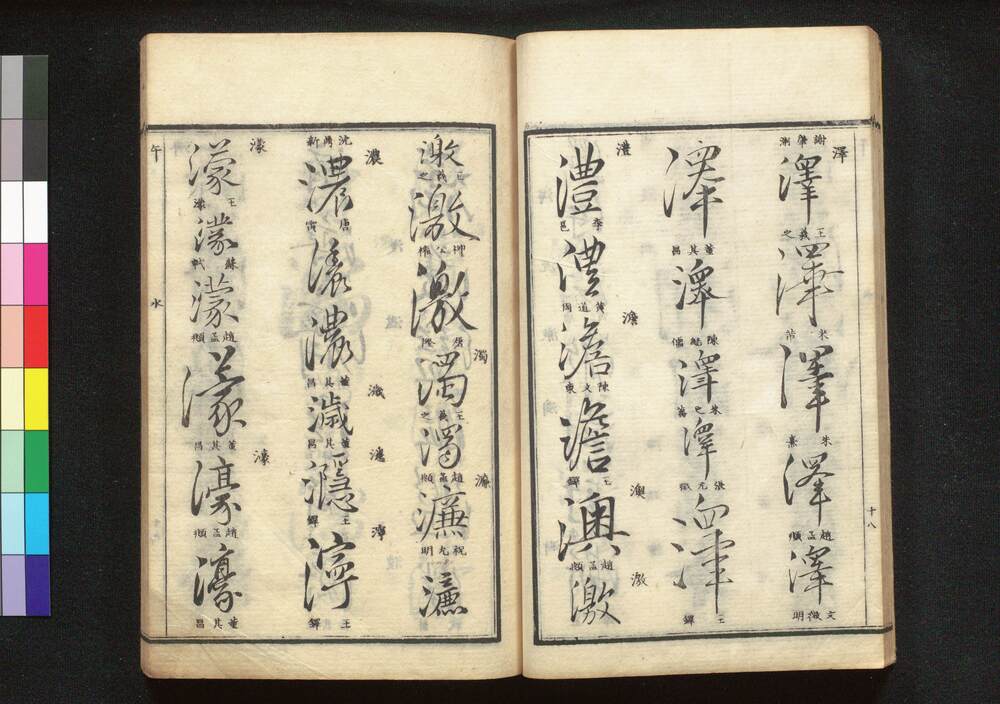 十八
澤
澤
王羲之
澤
米芾
澤
朱熹
澤
趙孟頫
澤
文徵明
澤
董其昌
澤
澤
澤
澤
王鐸
澧
澧
李邕
澧
黃道周
澹
澹
陳文東
澹
王鐸
澳
澳
趙孟頫
激
激
激
王羲之
激
柳公權
激
濁
濁
王羲之
濁
趙孟頫
濂
濂
祝允明
濂
濃
濃
唐寅
濃
濃
董其昌
濊
濊
董其昌
濦
濦
王鐸
濘
濘
王鐸
濛
濛
王濛
濛
蘇軾
濛
趙孟頫
濛
董其昌
濠
濠
趙孟頫
濠
董其昌
午
水